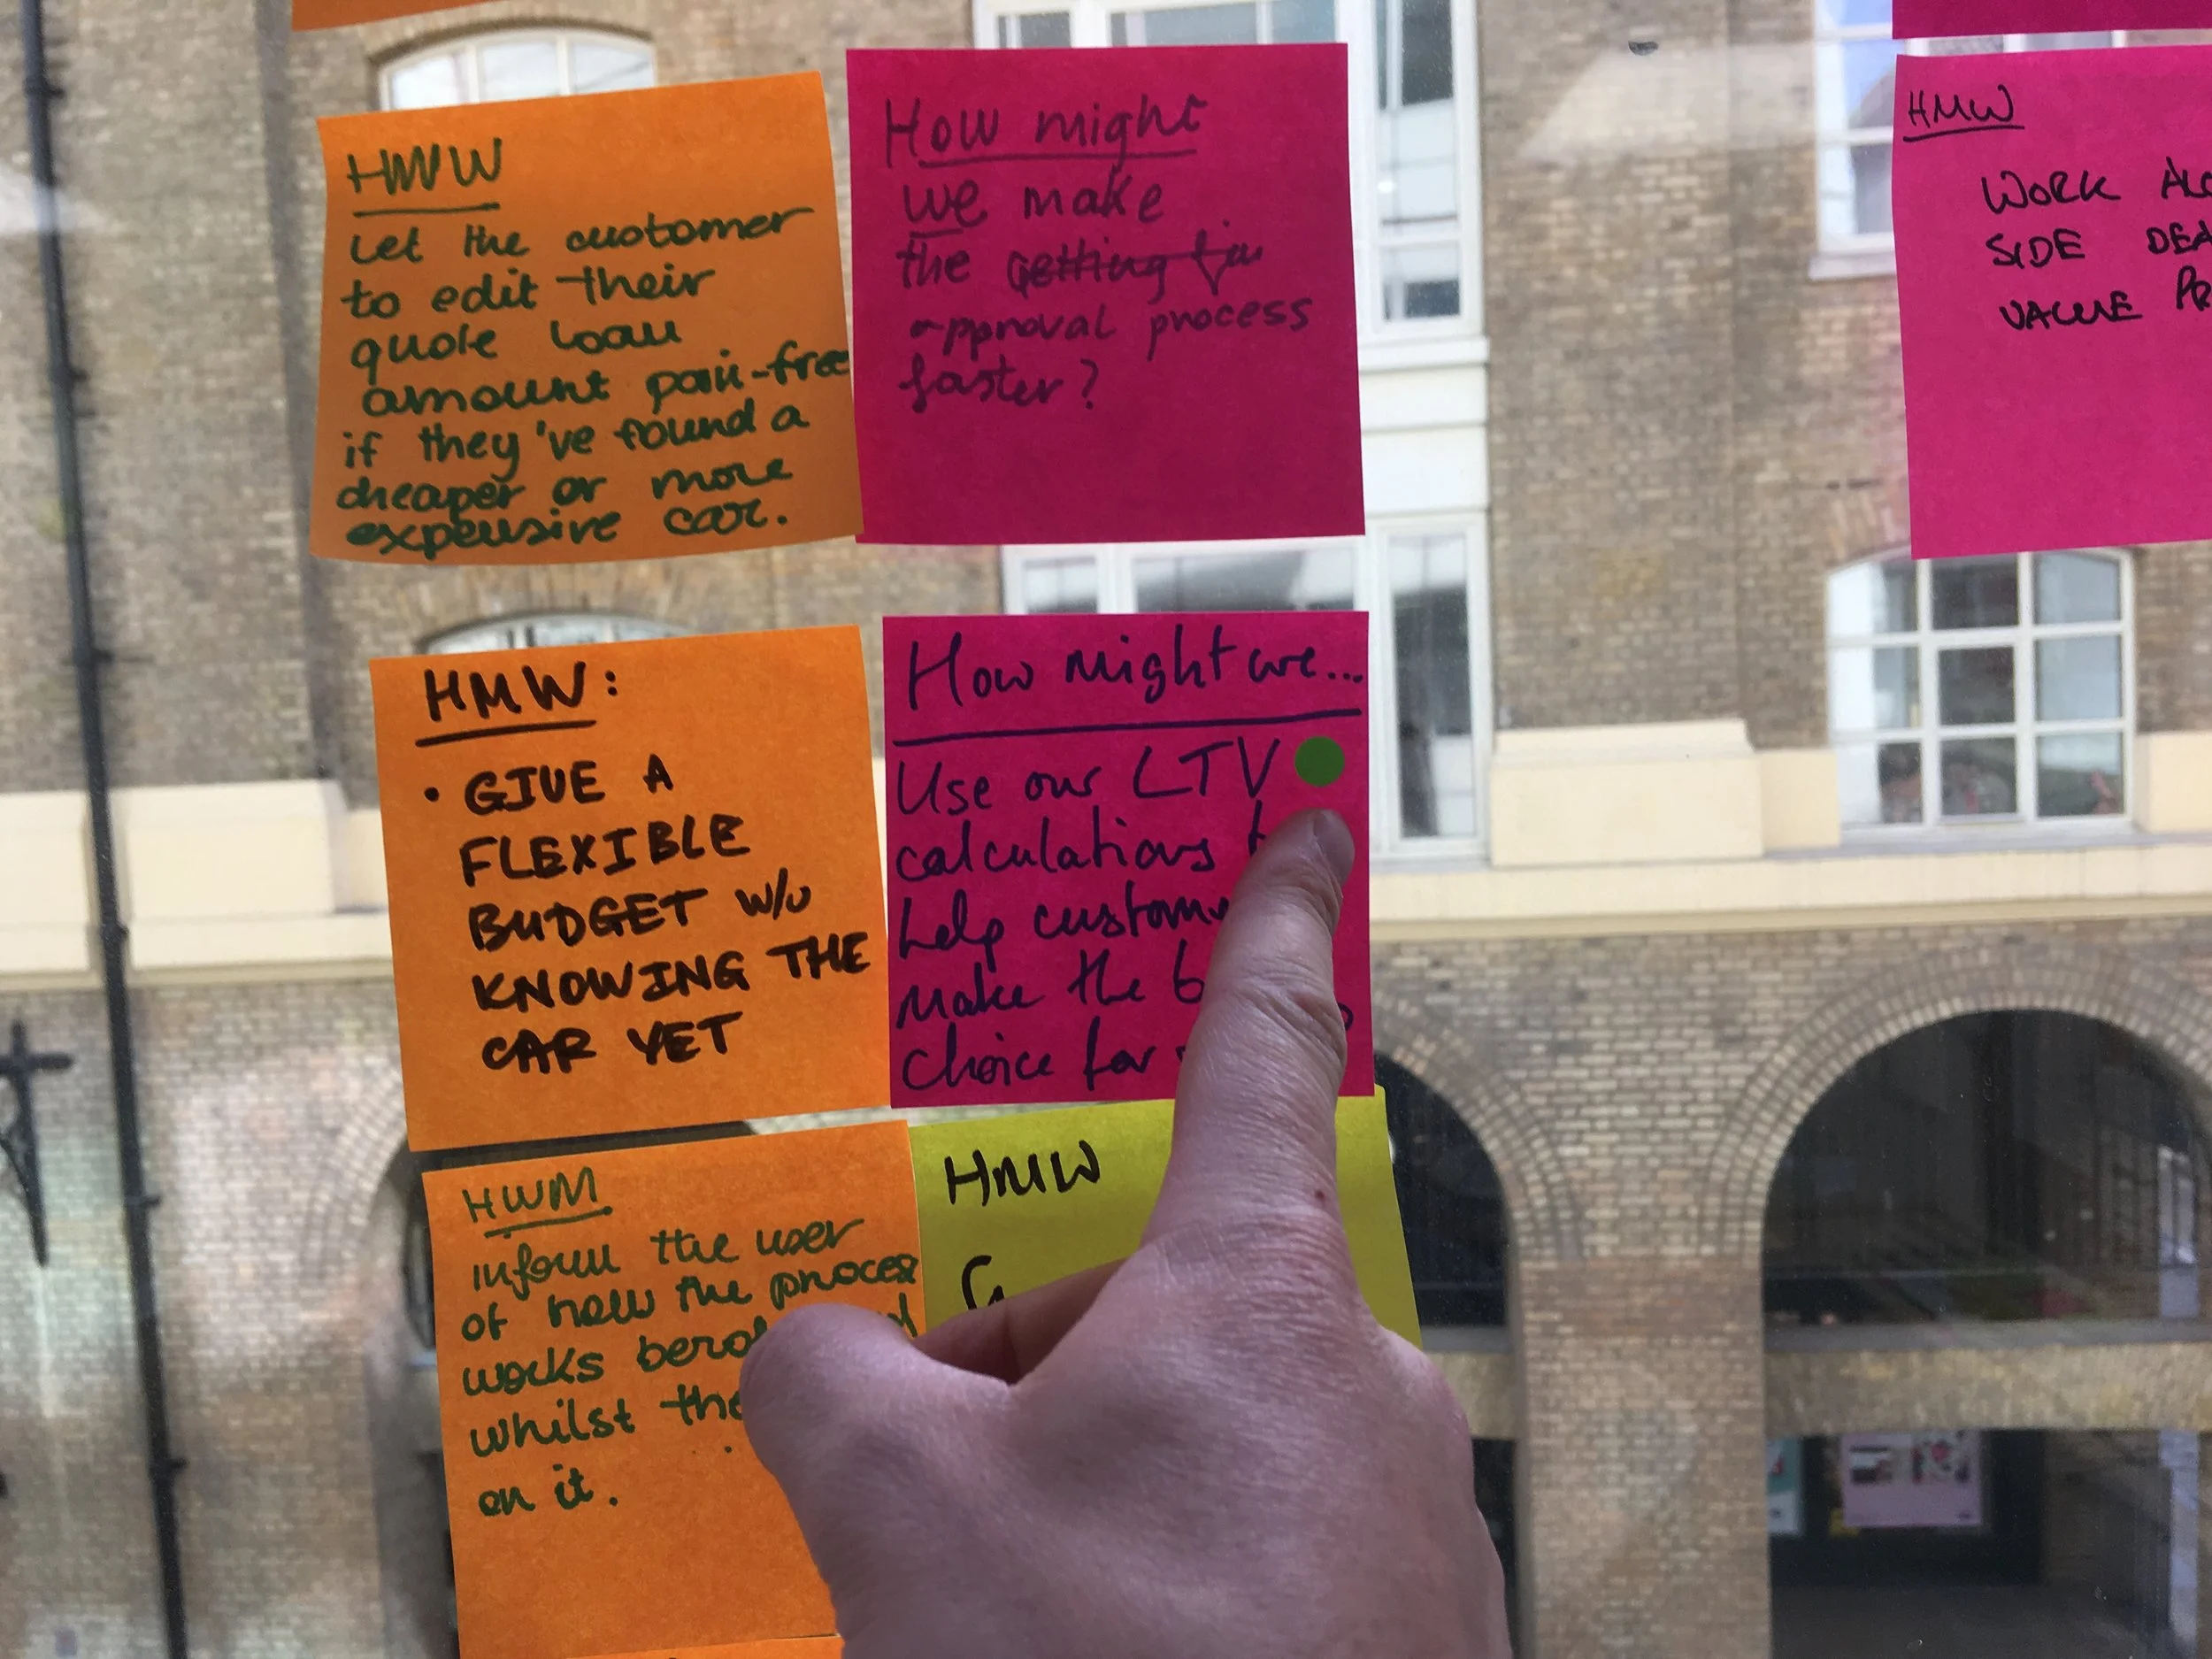 HMW
Let the customer
to edit their
quote loan
amount pain-free
if they've found a
cheaper or more
expensive car.
How might
we make
the getting
approval process
faster?
HMW
WORK
SIDE
VALUE
HMW:
• GIVE A
FLEXIBLE
BUDGET w/o
KNOWING THE
CAR YET
How might we...
Use our LTV
calculations
help
make the
choice for
HWM
inform the user
of how the process
works
whilst
on it.
HMW